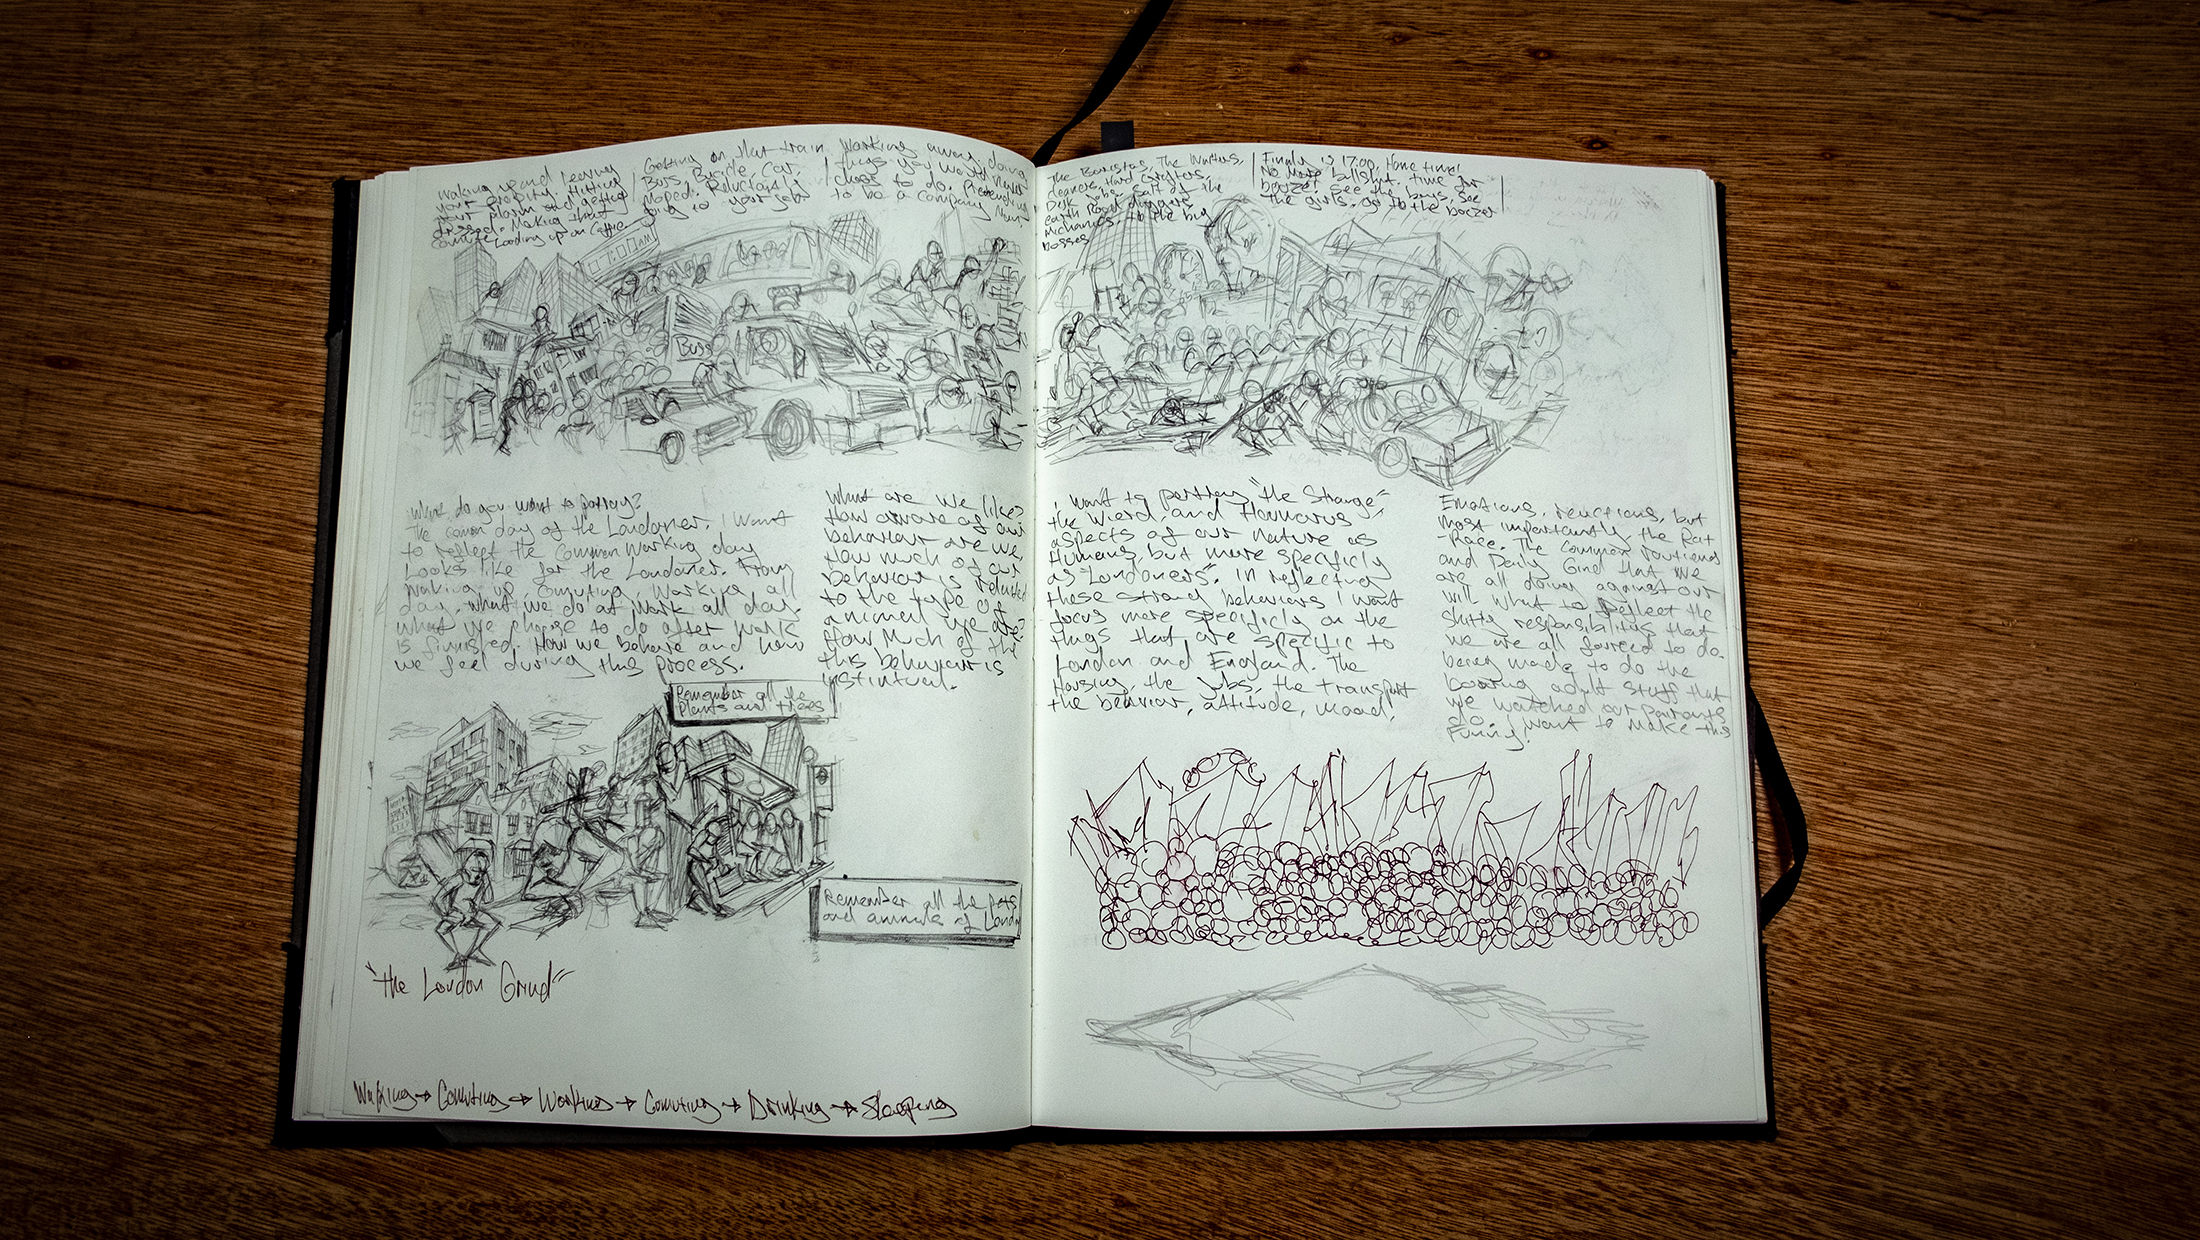 Waking up and leaving
your proprity. Hitting
your Alarm and getting
dressed. Making that
comute Loading up on Coffee
Getting on that train
Buss, Bicicle, Car,
Moped. Reluctantly
going to your job
Working away doing
things you would never
chose to do. Pretending
to be a company Man.
The Baristas, The Waiters,
cleaners, Hard Grafters,
Desk Jobs, salt of the
earth Road diggers
Michanics, to the big
bosses
Finaly is 17:00, Home time!
No More bullshit. time for
booze! see the boris, see
The girls. go to the boozer
Buss
What do you want to portray?
The comon day of the Londoner. I Want
to reflect the common working day
Looks like for the Londoner. From
waking up, comuting, working all
day. what we do at work all day.
what we choose to do after work
is finnished. How we behave and how
we feel during this process.
What are we like?
How aware of our
behaviour are we
How much of our
behavior is related
to the type of
animal we are?
How Much of the
this behaviour is
instintual.
Remember all the
Plants and trees
Remember all the pets
and animals of London
"the London Grind"
Waking → Comuting → Working → Comuting → Drinking → Sleeping
i want to portray "the Strange"
the Wierd, and Humorus
aspects of our nature as
Humans, but more specificly
as "Londoners". In reflecting
these strang behaviors I want
focus more specificly on the
things that are specific to
London and England. The
Housing, the jobs, the transport
the behavior, attitude, mood,
Emotions, reactions, but
most importantly the Rat
-Race. The Common routiens
and Daily Grind that we
are all doing against our
will What to Reflect the
shitty responsibilitis that
we are all foreced to do.
being made to do the
boaring adult stuff that
we watched our parants
do. I want to make this
Funny.